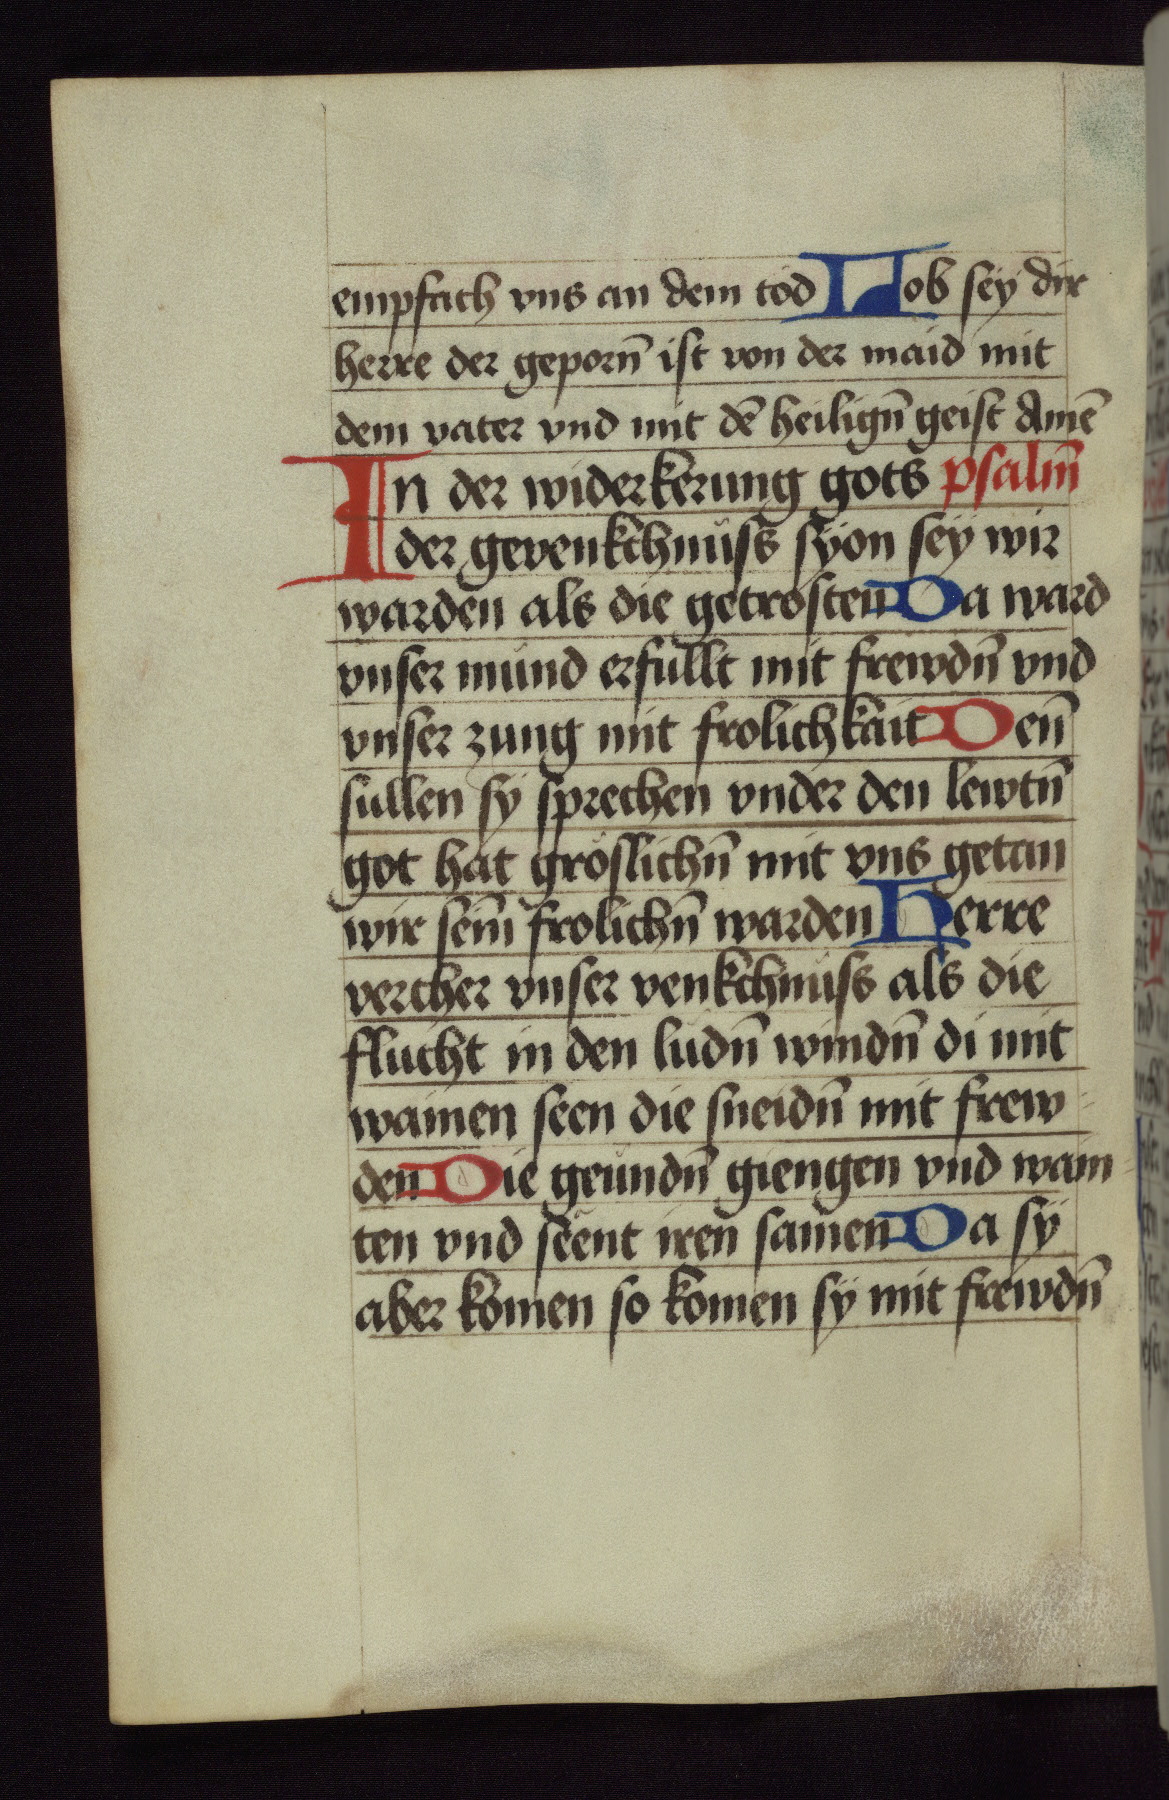 empfach vns an dem tod Lob sey dir
herre der geporn̄ ist von der maid mit
dem vater vnd mit dē heilign̄ geist Amē
In der widerkerung gots psalm̄
der gevenkchnüss syon sey wir
warden als die getrosten Da ward
vnser mund erfullt mit frewdn̄ vnd
vnser zung mit frolichkait Den̄
sullen sy sprechen vnder den lewtn̄
got hat gröslichn̄ mit vns getan
wir sein̄ frolichn̄ warden Herre
vercher vnser venkchnüss als die
flucht in den sudn̄ windn̄ di mit
wainen seen die sneidn̄ mit frew-
den Die geundn̄ giengen vnd wain-
ten vnd seent iren samen Da sy
aber komen so komen sy mit frewdn̄